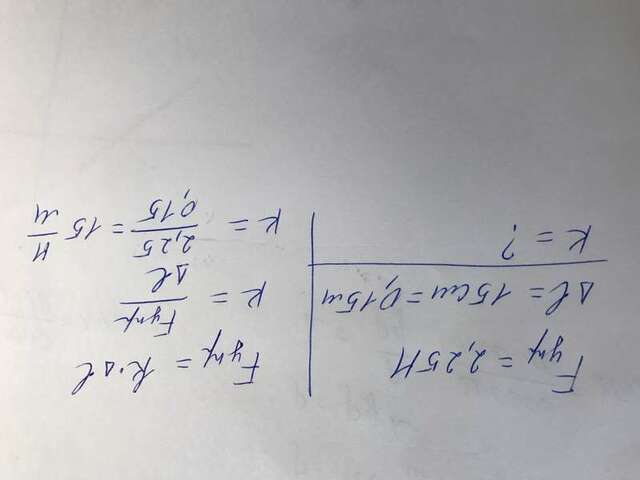 Fупр = 2,25Н
Δl = 15см = 0,15м
K = ?
Fупр = k·Δl
K = Fупр / Δl
K = 2,25 / 0,15 = 15 Н/м